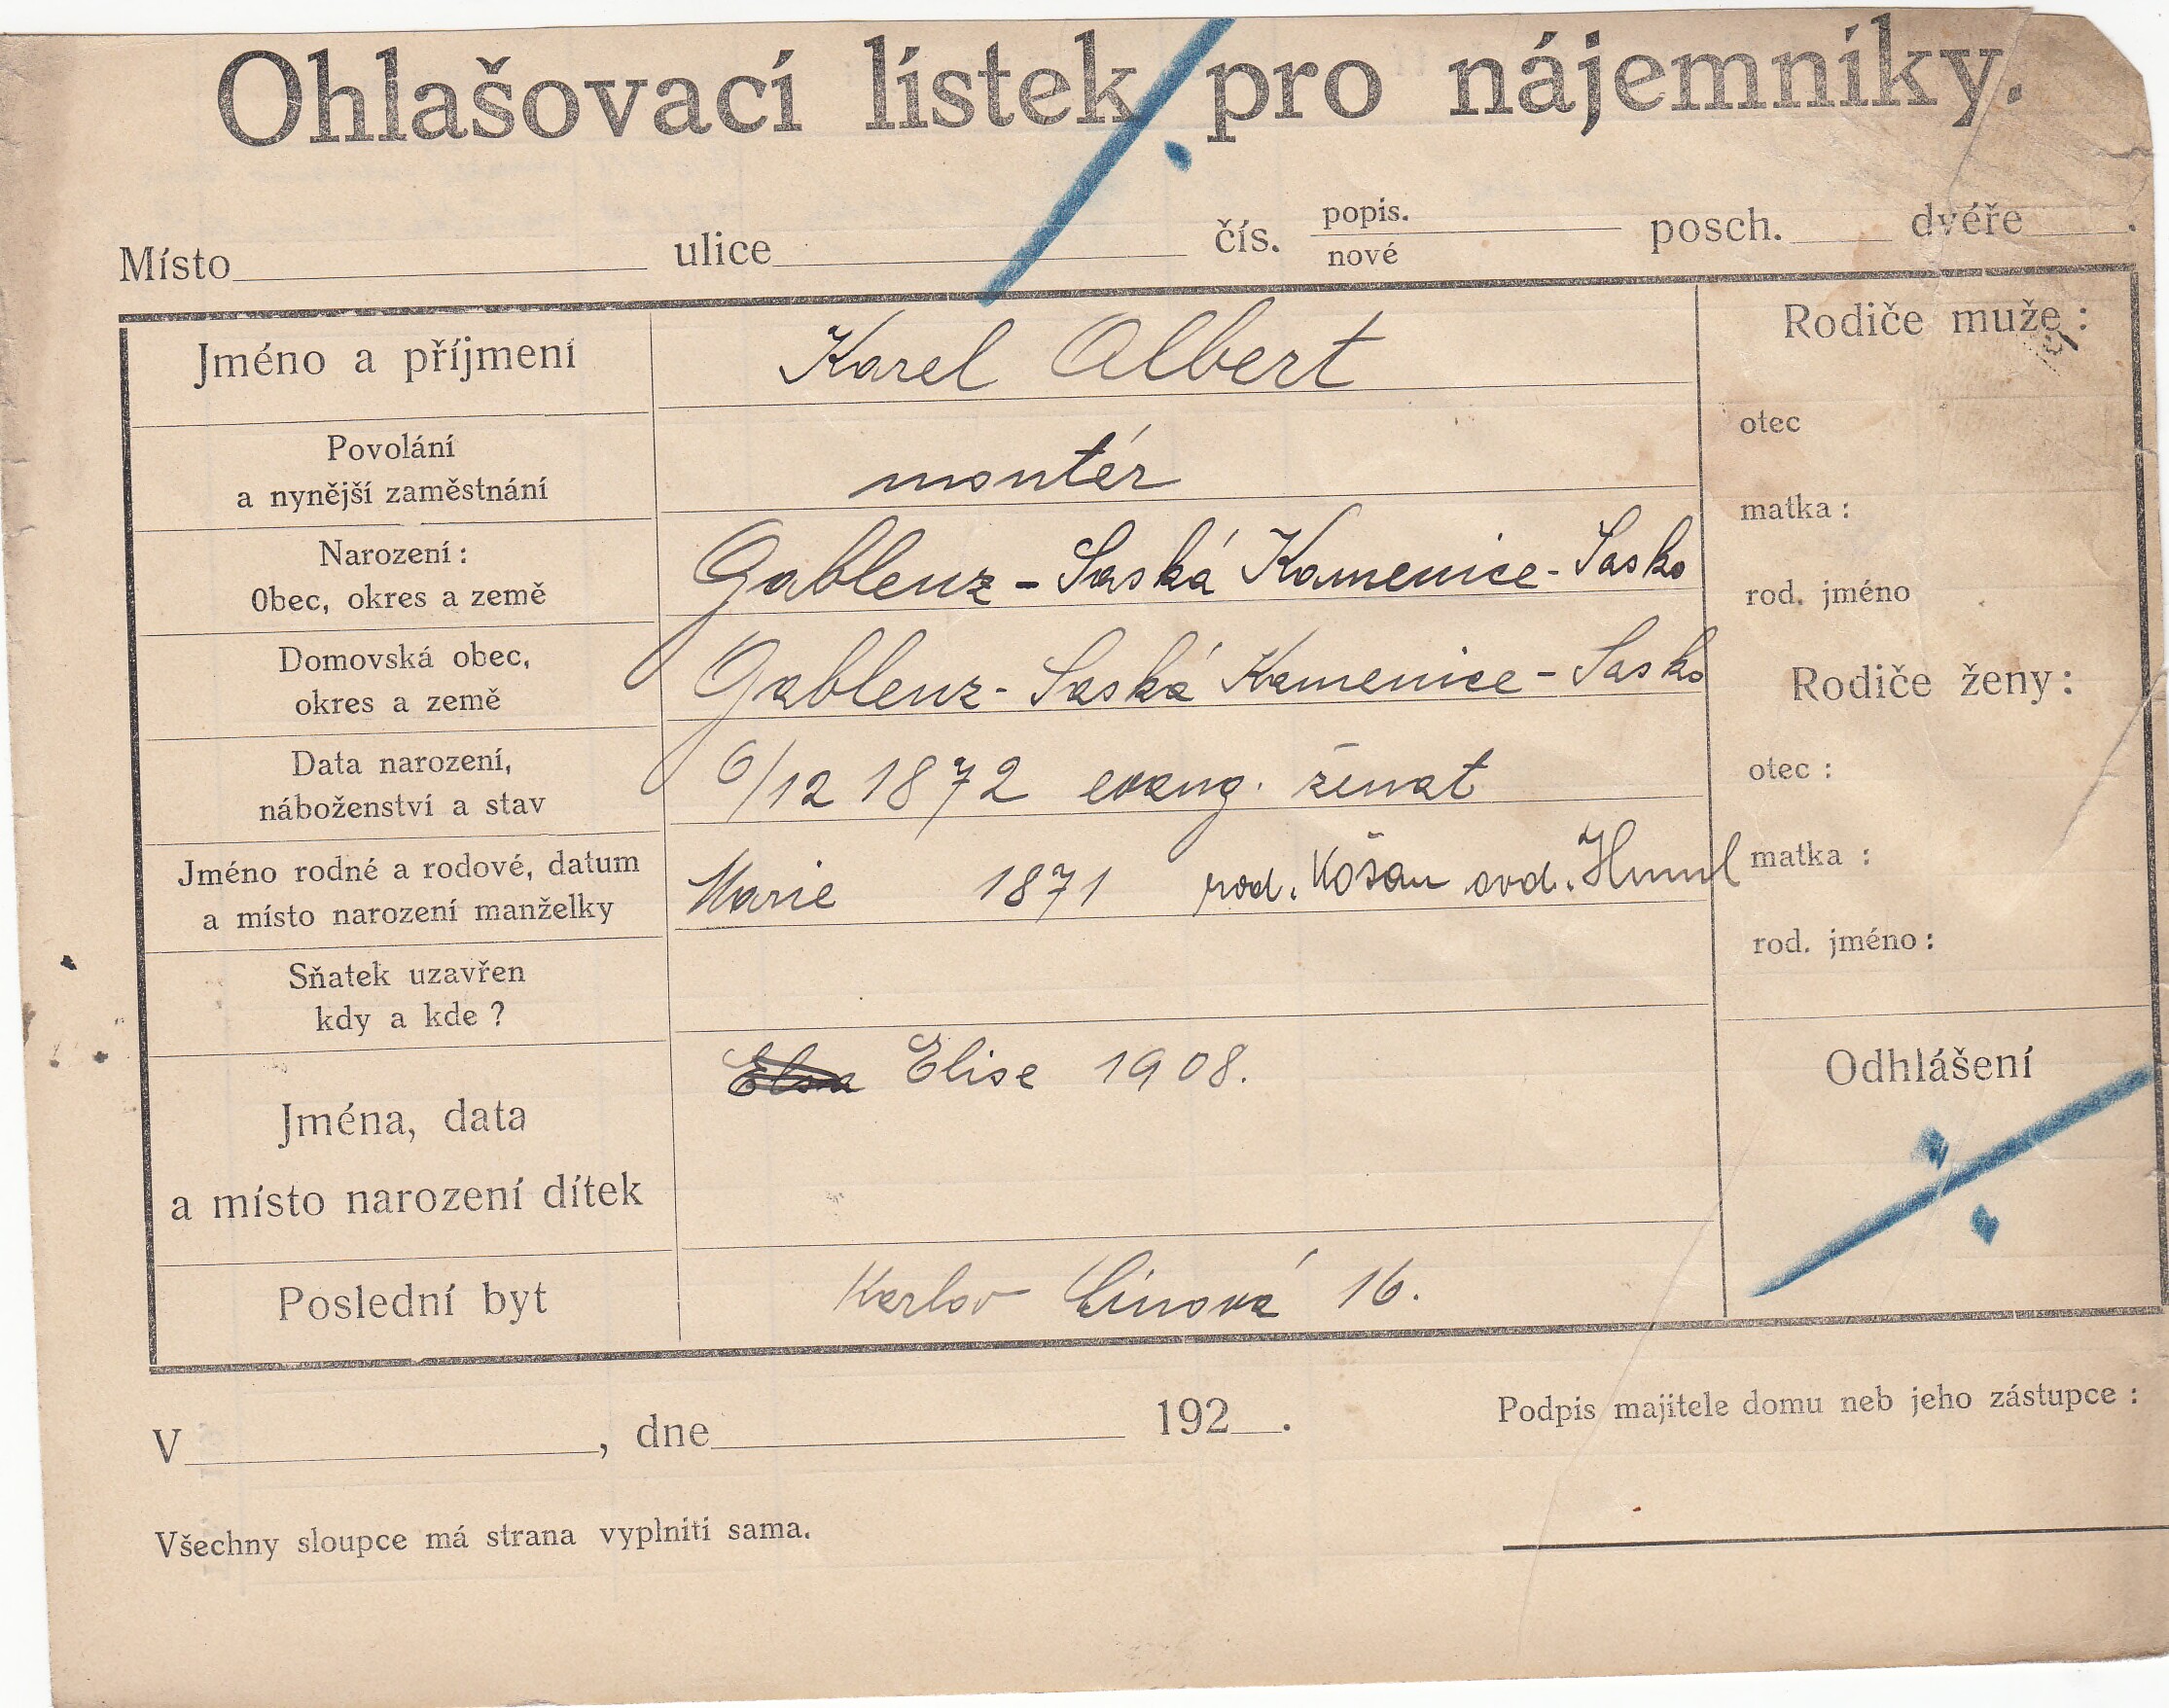 Ohlašovací lístek pro nájemníky.
Místo ulice čís. popis. nové posch. dvéře .
Jméno a příjmení Karel Albert
Rodiče muže :
Povolání
a nynější zaměstnání montér
otec
Narození :
Obec, okres a země Gablenz - Saská Kamenice - Sasko
matka :
rod. jméno
Domovská obec,
okres a země Gablenz - Saská Kamenice - Sasko
Rodiče ženy :
Data narození,
náboženství a stav 6/12 1872 evang. ženat
otec :
Jméno rodné a rodové, datum
a místo narození manželky Marie 1871 rod. Košan ovd. Huml
matka :
rod. jméno :
Sňatek uzavřen
kdy a kde ?
Jména, data
a místo narození dítek Elsa Elise 1908.
Odhlášení
Poslední byt Karlov 16.
V , dne 192 .
Podpis majitele domu neb jeho zástupce :
Všechny sloupce má strana vyplniti sama.